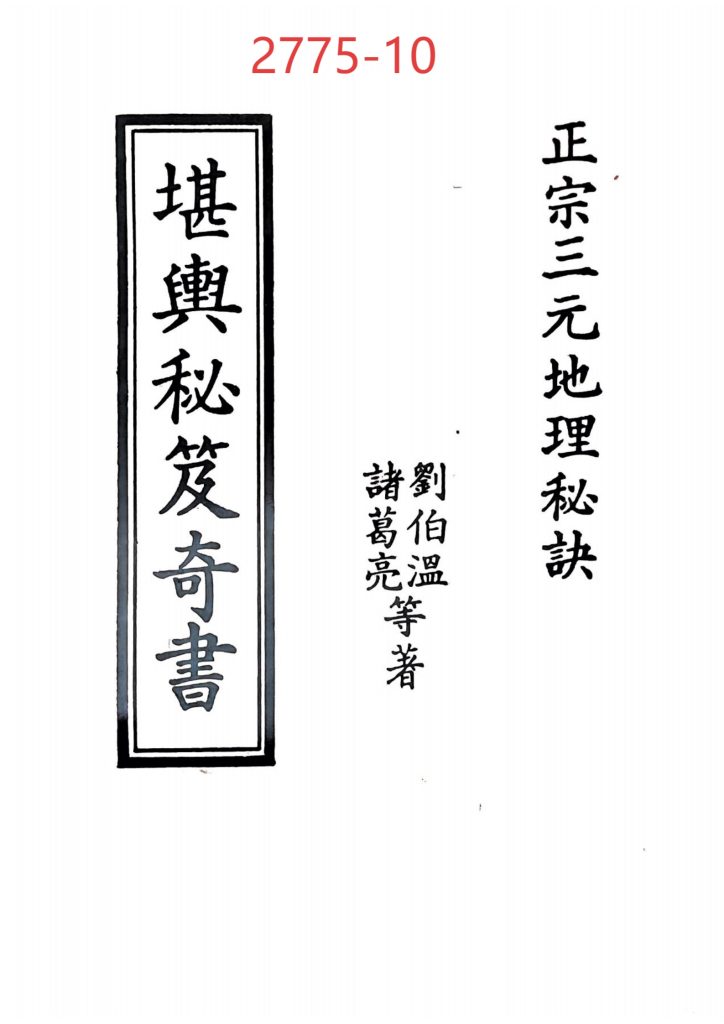 2775-10
正宗三元地理秘訣
劉伯溫
諸葛亮
等著
堪輿秘笈奇書